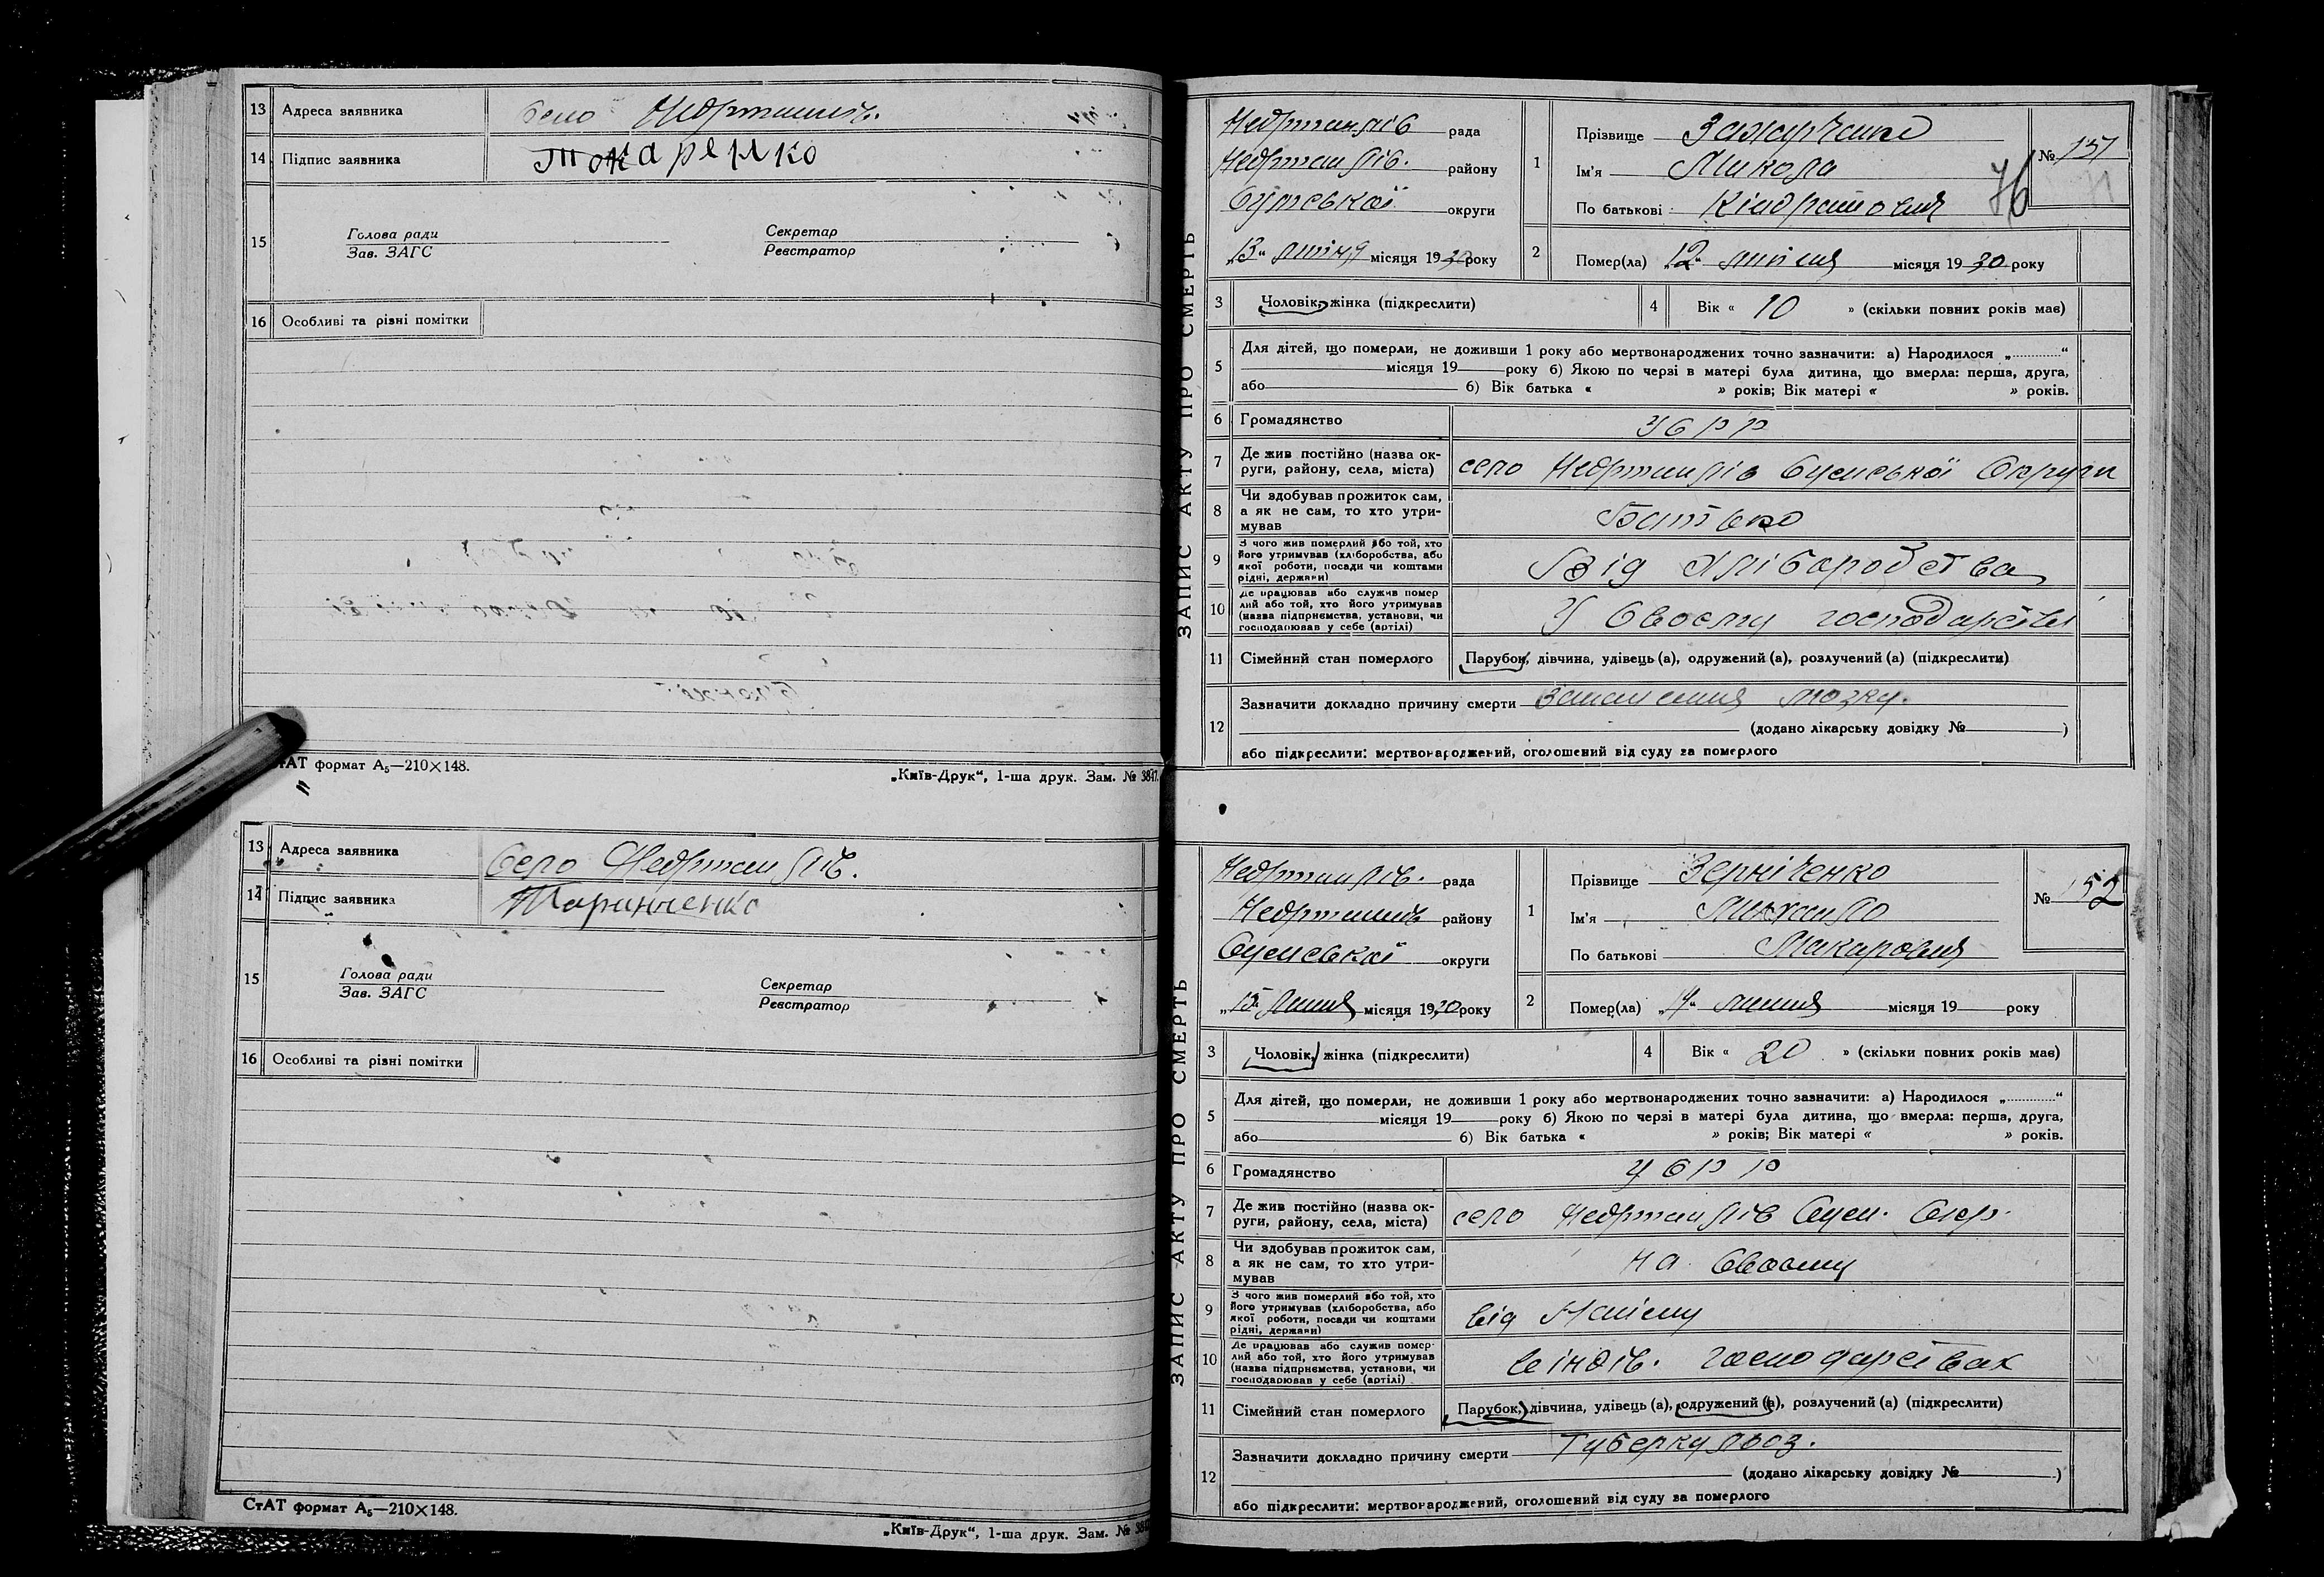 13 Адреса заявника село Недригайлів.
14 Підпис заявника Токаренко
15 Голова ради
Зав. ЗАГС
Секретар
Реєстратор
16 Особливі та різні помітки
СтАТ формат А₅—210×148.
„Київ-Друк“, 1-ша друк. Зам. № 3847.
13 Адреса заявника Село Недригайлів.
14 Підпис заявника
15 Голова ради
Зав. ЗАГС
Секретар
Реєстратор
16 Особливі та різні помітки
СтАТ формат А₅—210×148.
„Київ-Друк“, 1-ша друк. Зам. №
ЗАПИС АКТУ ПРО СМЕРТЬ
Недригайлів рада
Недригайлів. району
Сумської округи
„13“ липня місяця 1930 року
1 Прізвище Захарченко
Ім'я Микола
По батькові Кіндратович
№ 151
76
2 Помер(ла) „12“ липня місяця 1930 року
3 Чоловік, жінка (підкреслити)
4 Вік « 10 » (скільки повних років має)
5 Для дітей, що померли, не доживши 1 року або мертвонароджених точно зазначити: а) Народилося „............“
місяця 19 року б) Якою по черзі в матері була дитина, що вмерла: перша, друга,
або б) Вік батька « » років; Вік матері « » років.
6 Громадянство УСРР
7 Де жив постійно (назва округи, району, села, міста) село Недригайлів Сумської Округи
8 Чи здобував прожиток сам, а як не сам, то хто утримував Батько
9 З чого жив померлий або той, хто його утримував (хліборобства, або якої роботи, посади чи коштами рідні, держави) Від хліборобства
10 Де працював або служив померлий або той, хто його утримував (назва підприємства, установи, чи господарював у себе (артілі) У своєму господарстві
11 Сімейний стан померлого Парубок, дівчина, удівець (а), одружений (а), розлучений (а) (підкреслити)
12 Зазначити докладно причину смерти Запалення мозку.
(додано лікарську довідку № )
або підкреслити: мертвонароджений, оголошений від суду за померлого
ЗАПИС АКТУ ПРО СМЕРТЬ
Недригайлів. рада
Недригайлів району
Сумської округи
„15“ Липня місяця 1930 року
1 Прізвище Зерніченко
Ім'я Михайло
По батькові Макарович
№ 152
2 Помер(ла) „14“ липня місяця 19 року
3 Чоловік, жінка (підкреслити)
4 Вік « 20 » (скільки повних років має)
5 Для дітей, що померли, не доживши 1 року або мертвонароджених точно зазначити: а) Народилося „............“
місяця 19 року б) Якою по черзі в матері була дитина, що вмерла: перша, друга,
або б) Вік батька « » років; Вік матері « » років.
6 Громадянство УСРР
7 Де жив постійно (назва округи, району, села, міста) село Недригайлів Сум. Окр.
8 Чи здобував прожиток сам, а як не сам, то хто утримував на своєму
9 З чого жив померлий або той, хто його утримував (хліборобства, або якої роботи, посади чи коштами рідні, держави) від Найому
10 Де працював або служив померлий або той, хто його утримував (назва підприємства, установи, чи господарював у себе (артілі) в індів. господарствах
11 Сімейний стан померлого Парубок, дівчина, удівець (а), одружений (а), розлучений (а) (підкреслити)
12 Зазначити докладно причину смерти Туберкульоз.
(додано лікарську довідку № )
або підкреслити: мертвонароджений, оголошений від суду за померлого